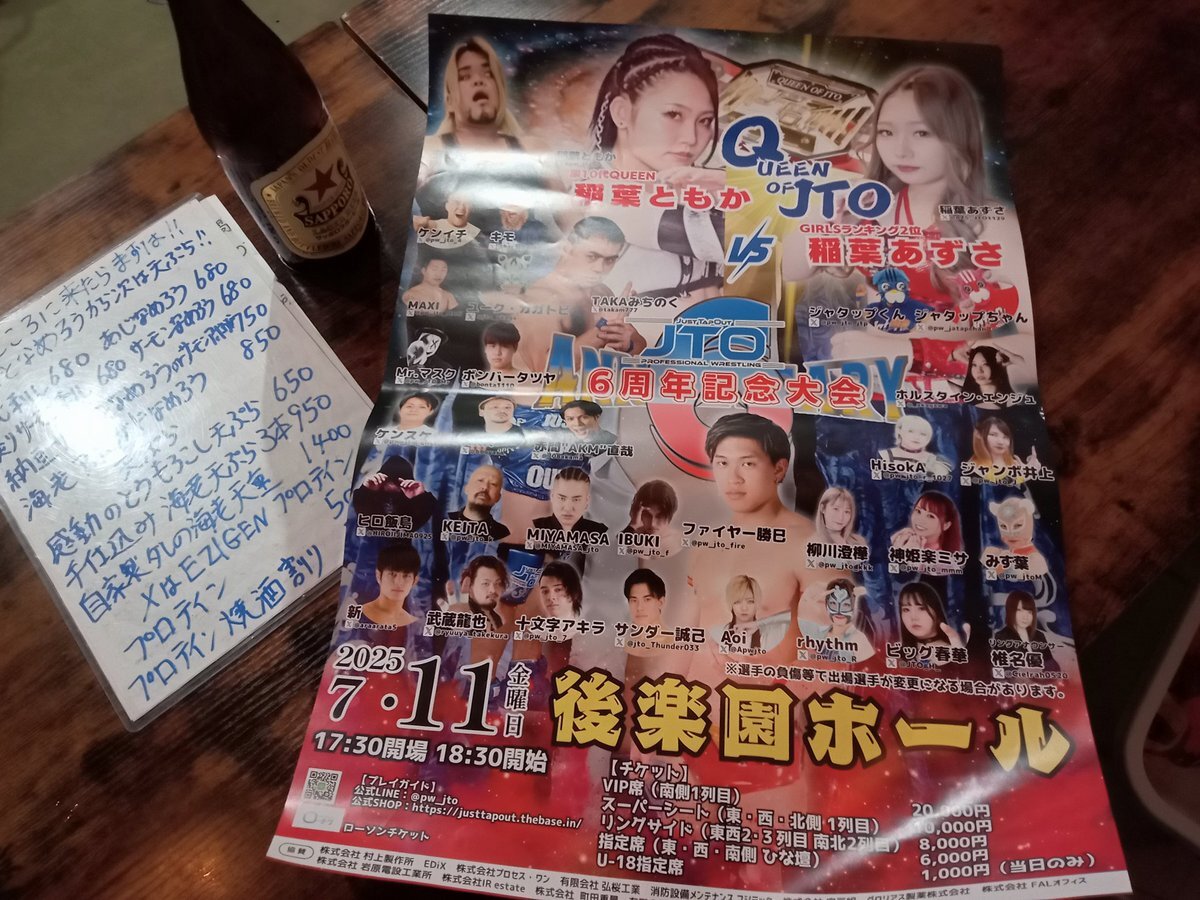 ところに来たらまずは!!
となめろうから次は天ぷら!!
680 あじなめろう 680
680 サーモンなめろう 680
750
なめろう 850
海老
感動のとうもろこし天ぷら 650
手仕込み海老天ぷら3本950
自家製タレの海老天重 1400
XはEZIGEN プロテイン
プロテイン
プロテイン焼酒割り
SAPPORO
QUEEN OF JTO
QUEEN OF JTO
稲葉ともか
第10代QUEEN
稲葉ともか
VS
稲葉あずさ
GIRLSランキング2位
稲葉あずさ
ケンイチ
@pw_jto_4
キモ
MAXI
TAKAみちのく
@takam777
ジャタップくん
ジャタップちゃん
JUST TAP OUT
JTO
PROFESSIONAL WRESTLING
6周年記念大会
Mr.マスク
ボンバータツヤ
ホルスタイン・エンジュ
ケンスケ
赤間"AKM"直哉
HisokA
ジャンボ井上
ヒロ飯島
KEITA
MIYAMASA
IBUKI
@pw_jto_f
ファイヤー勝巳
@pw_jto_fire
柳川澄樺
神姫楽ミサ
@pw_jto_mmm
みず葉
@pw_jtoM
新
武蔵龍也
@ryuuya_takekura
十文字アキラ
@pw_jto_7
サンダー誠己
@jto_Thunder033
Aoi
@Apwjto
rhythm
@pw_jto_R
ビッグ春華
リングアナウンサー
椎名優
※選手の負傷等で出場選手が変更になる場合があります。
2025
7・11 金曜日
後楽園ホール
17:30開場 18:30開始
【プレイガイド】
公式LINE:@pw_jto
公式SHOP:https://justtapout.thebase.in/
ローソンチケット
【チケット】
VIP席(南側1列目) 20,000円
スーパーシート(東・西・北側 1列目) 10,000円
リングサイド(東西2・3列目 南北2列目) 8,000円
指定席(東・西・南側 ひな壇) 6,000円
U-18指定席 1,000円(当日のみ)
協賛 株式会社 村上製作所 EDiX 株式会社プロセス・ワン 有限会社 弘桜工業 消防設備メンテナンス
株式会社 岩原電設工業所 株式会社IR estate 株式会社 町田重量 グロリアス製薬株式会社 株式会社 FALオフィス